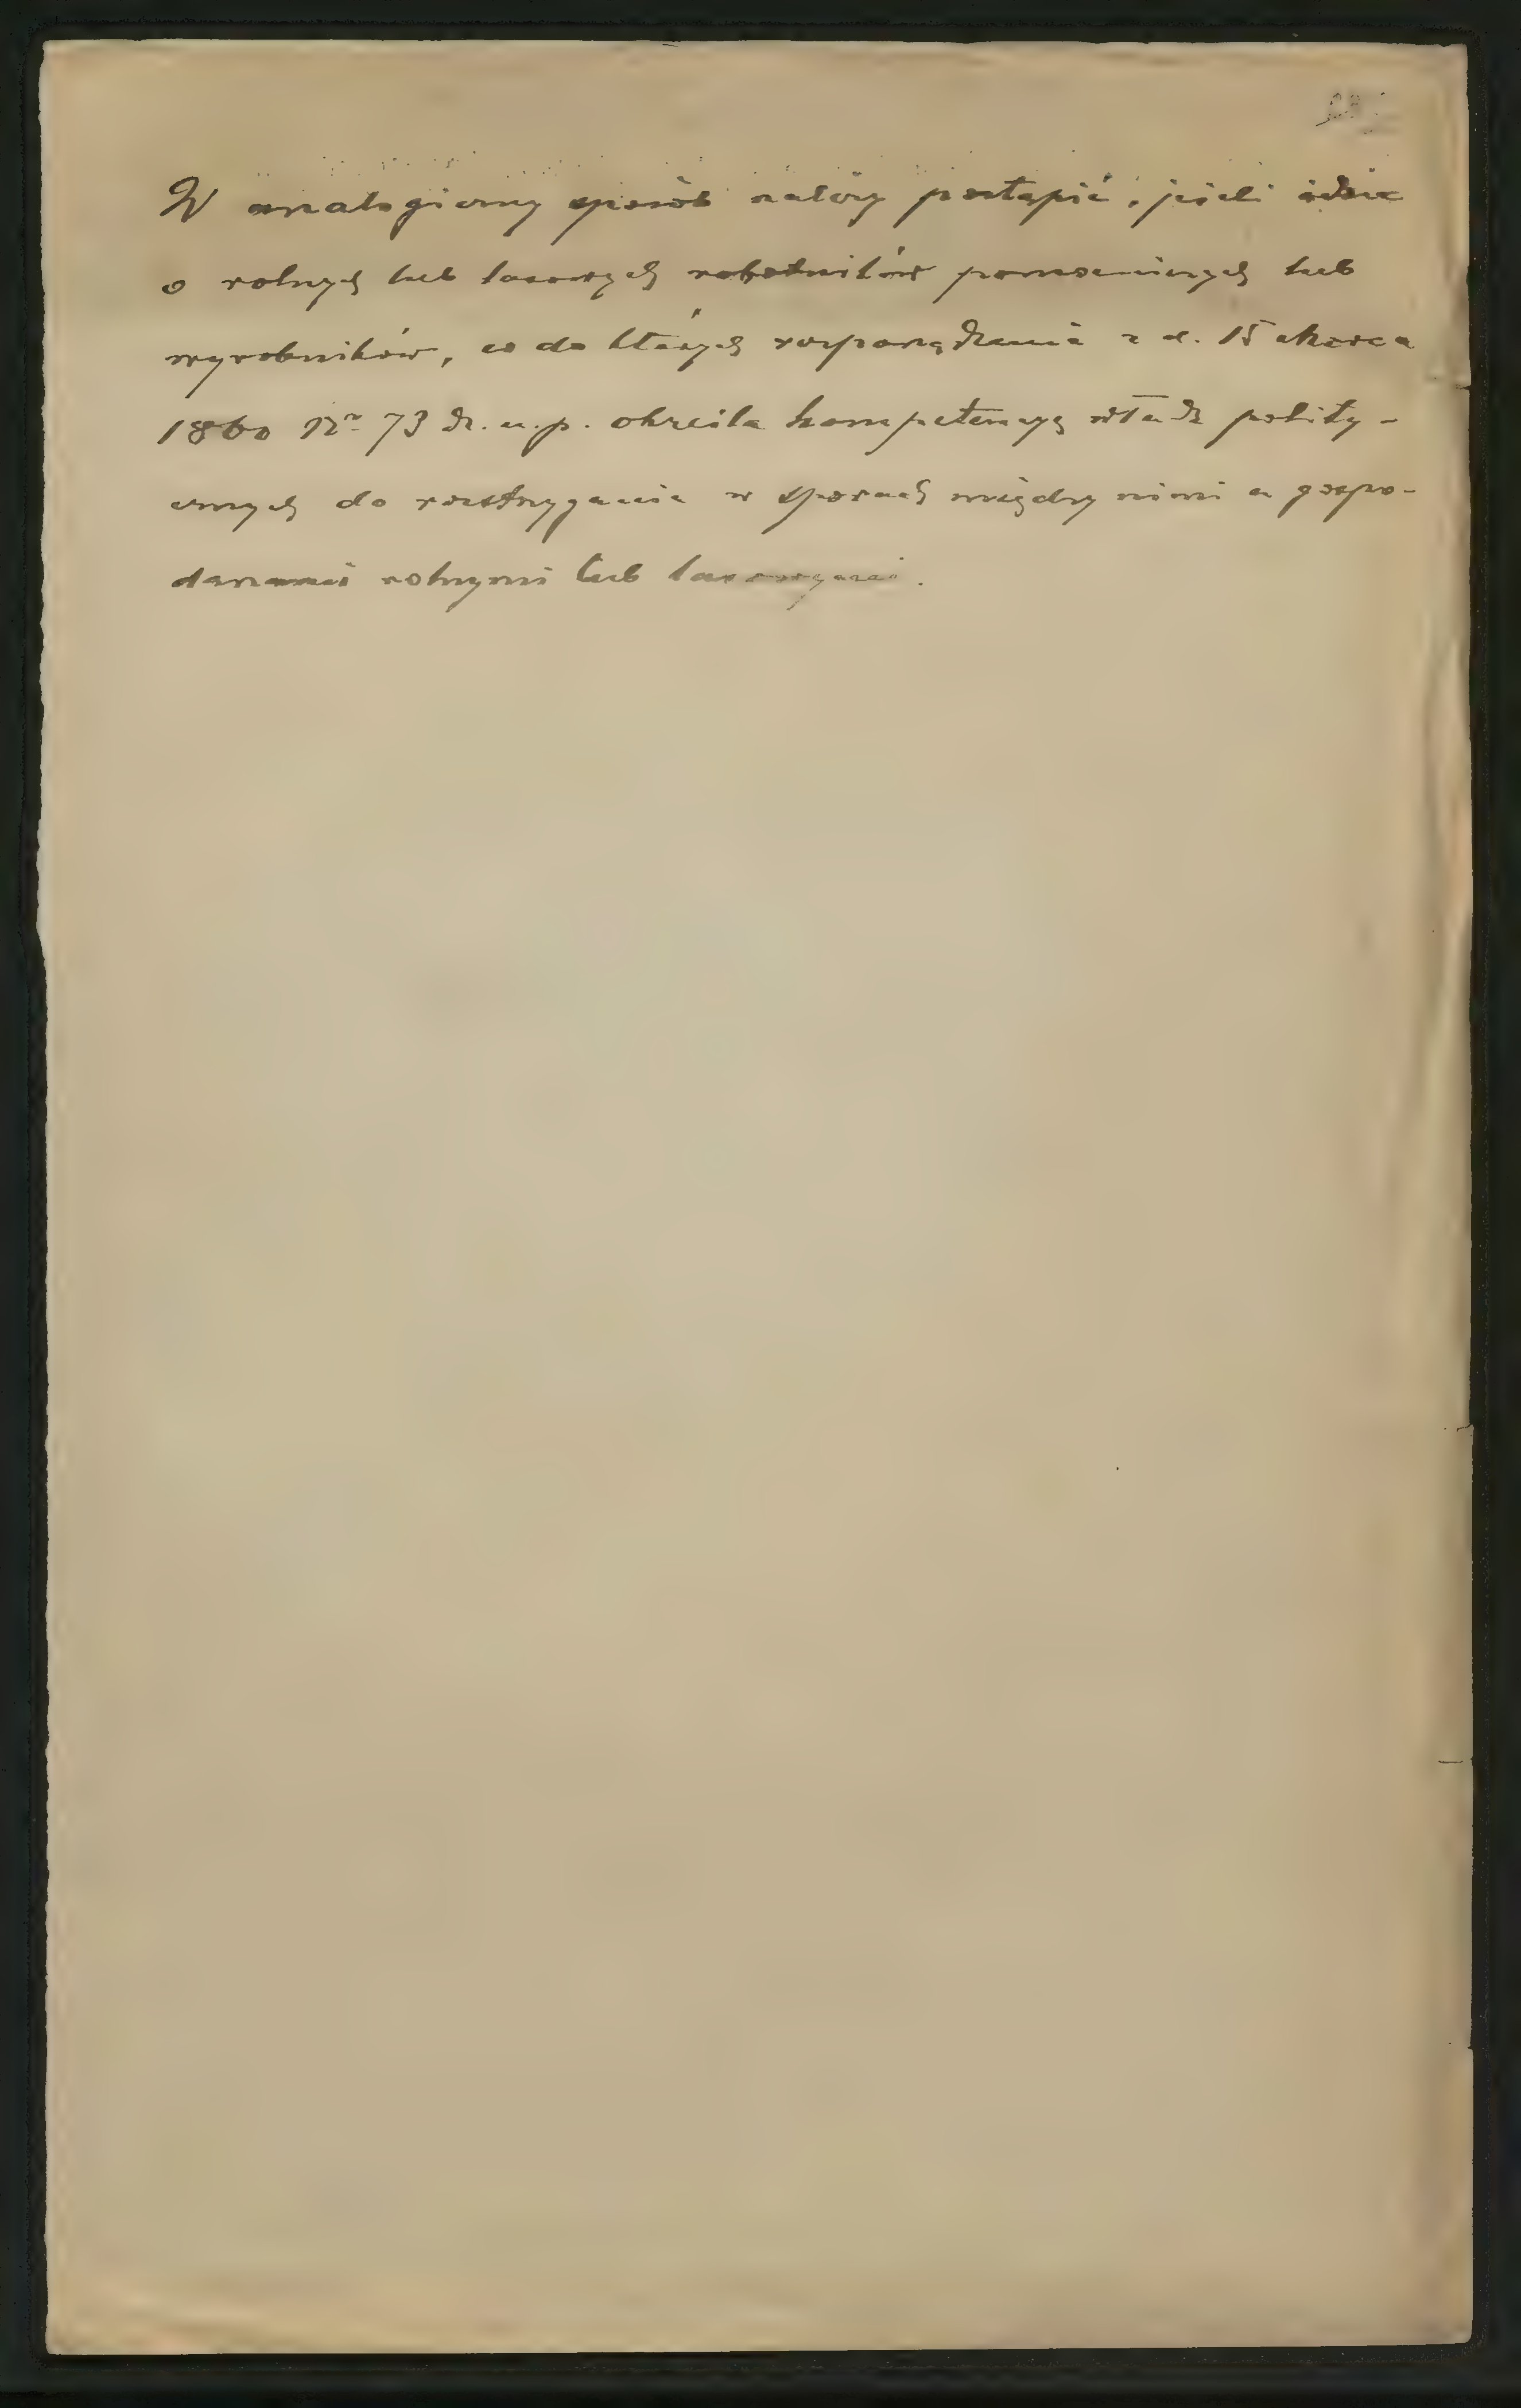 W analogiczny sposób należy postąpić, jeżeli idzie
o rolnych lub lasowych robotników pomocniczych lub
wyrobników, co do których rozporządzenie z d. 15 Marca
1860 Nr 73 Dz. u. p. określa kompetencyę władz polity-
cznych do rozstrzygania w sporach między nimi a gospo-
darzami rolnymi lub lasowymi.